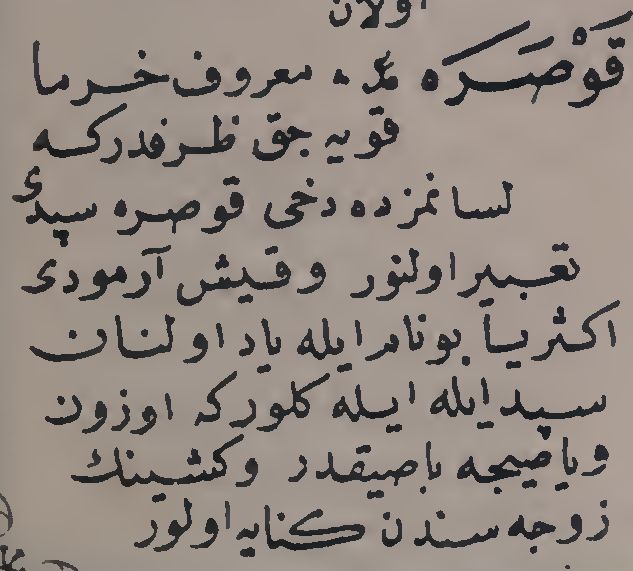 اولان
قَوْصَرَه معروف خرما
قویه جق ظرفدركه
لسانمزده دخی قوصره سپدی
تعبیر اولنور وقیش آرمودی
اكثریا بو نام ایله یاد اولنان
سپد ایله ایله كلور كه اوزون
ویاصیجه باصیقدر وكشینك
زوجه سندن كنایه اولور